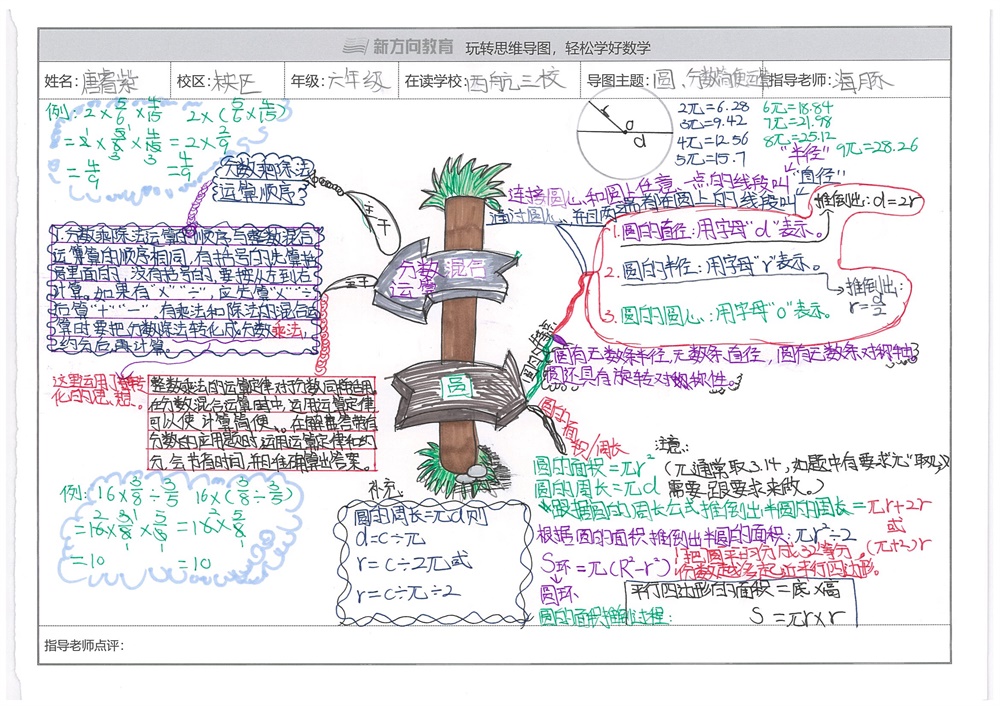 新方向教育 玩转思维导图，轻松学好数学
姓名：唐睿紫 校区：校区 年级：六年级 在读学校：西航三校 导图主题：圆、分数简便运算 指导老师：海豚
例：2×5/6×4/15 2×(5/6×4/15)
=2×5/6×4/15 =2×2/9
=4/9 =4/9
分数乘除法
运算顺序
1.分数乘除法运算的顺序与整数混合
运算的顺序相同，有括号的先算括
号里面的，没有括号的，要按从左到右
计算。如果有"×""÷"，应先算"×""÷"
后算"+""-"，有乘法和除法的混合运
算时要把分数除法转化成分数乘法，
约分后再计算。
化的思想。
整数乘法的运算定律对于分数同样适用
在分数混合运算时中，运用运算定律
可以使计算简便、。在解答带有
分数的应用题时，运用运算定律和约
分，会节省时间，并且准确算出答案。
例：16×3/8÷3/5 16×(3/8÷3/5)
=16×3/8×5/3 =16×5/8
=10 =10
主干
主干
分数混合
运算
圆
r
o
d
2π=6.28 6π=18.84
3π=9.42 7π=21.98
4π=12.56 8π=25.12
5π=15.7 9π=28.26
连接圆心和圆上任意一点的线段叫"半径"
通过圆心，并且两端都在圆上的线段叫"直径"
1.圆的直径：用字母"d"表示。
推倒出：d=2r
2.圆的半径：用字母"r"表示。
推倒出：
r=d/2
3.圆的圆心：用字母"o"表示。
圆的特点
圆有无数条半径，无数条直径，圆有无数条对称轴
圆还具有旋转对称性。
圆的面
积/周长
注意：
圆的面积=πr²（π通常取3.14，如题中有要求π取
圆的周长=πd 需要跟要求来做。）
*跟据圆的周长公式推倒出半圆的周长=πr+2r
或
(π+2)r
根据圆的面积推倒出半圆的面积：πr²÷2
S环=π(R²-r²)
圆环
把圆平均分成32等分，
份数越多起近平行四边形。
圆的面积推倒过程：
平行四边形的面积=底×高
S=πr×r
补充：
圆的周长=πd则
d=c÷π
r=c÷2π或
r=c÷π÷2
指导老师点评：